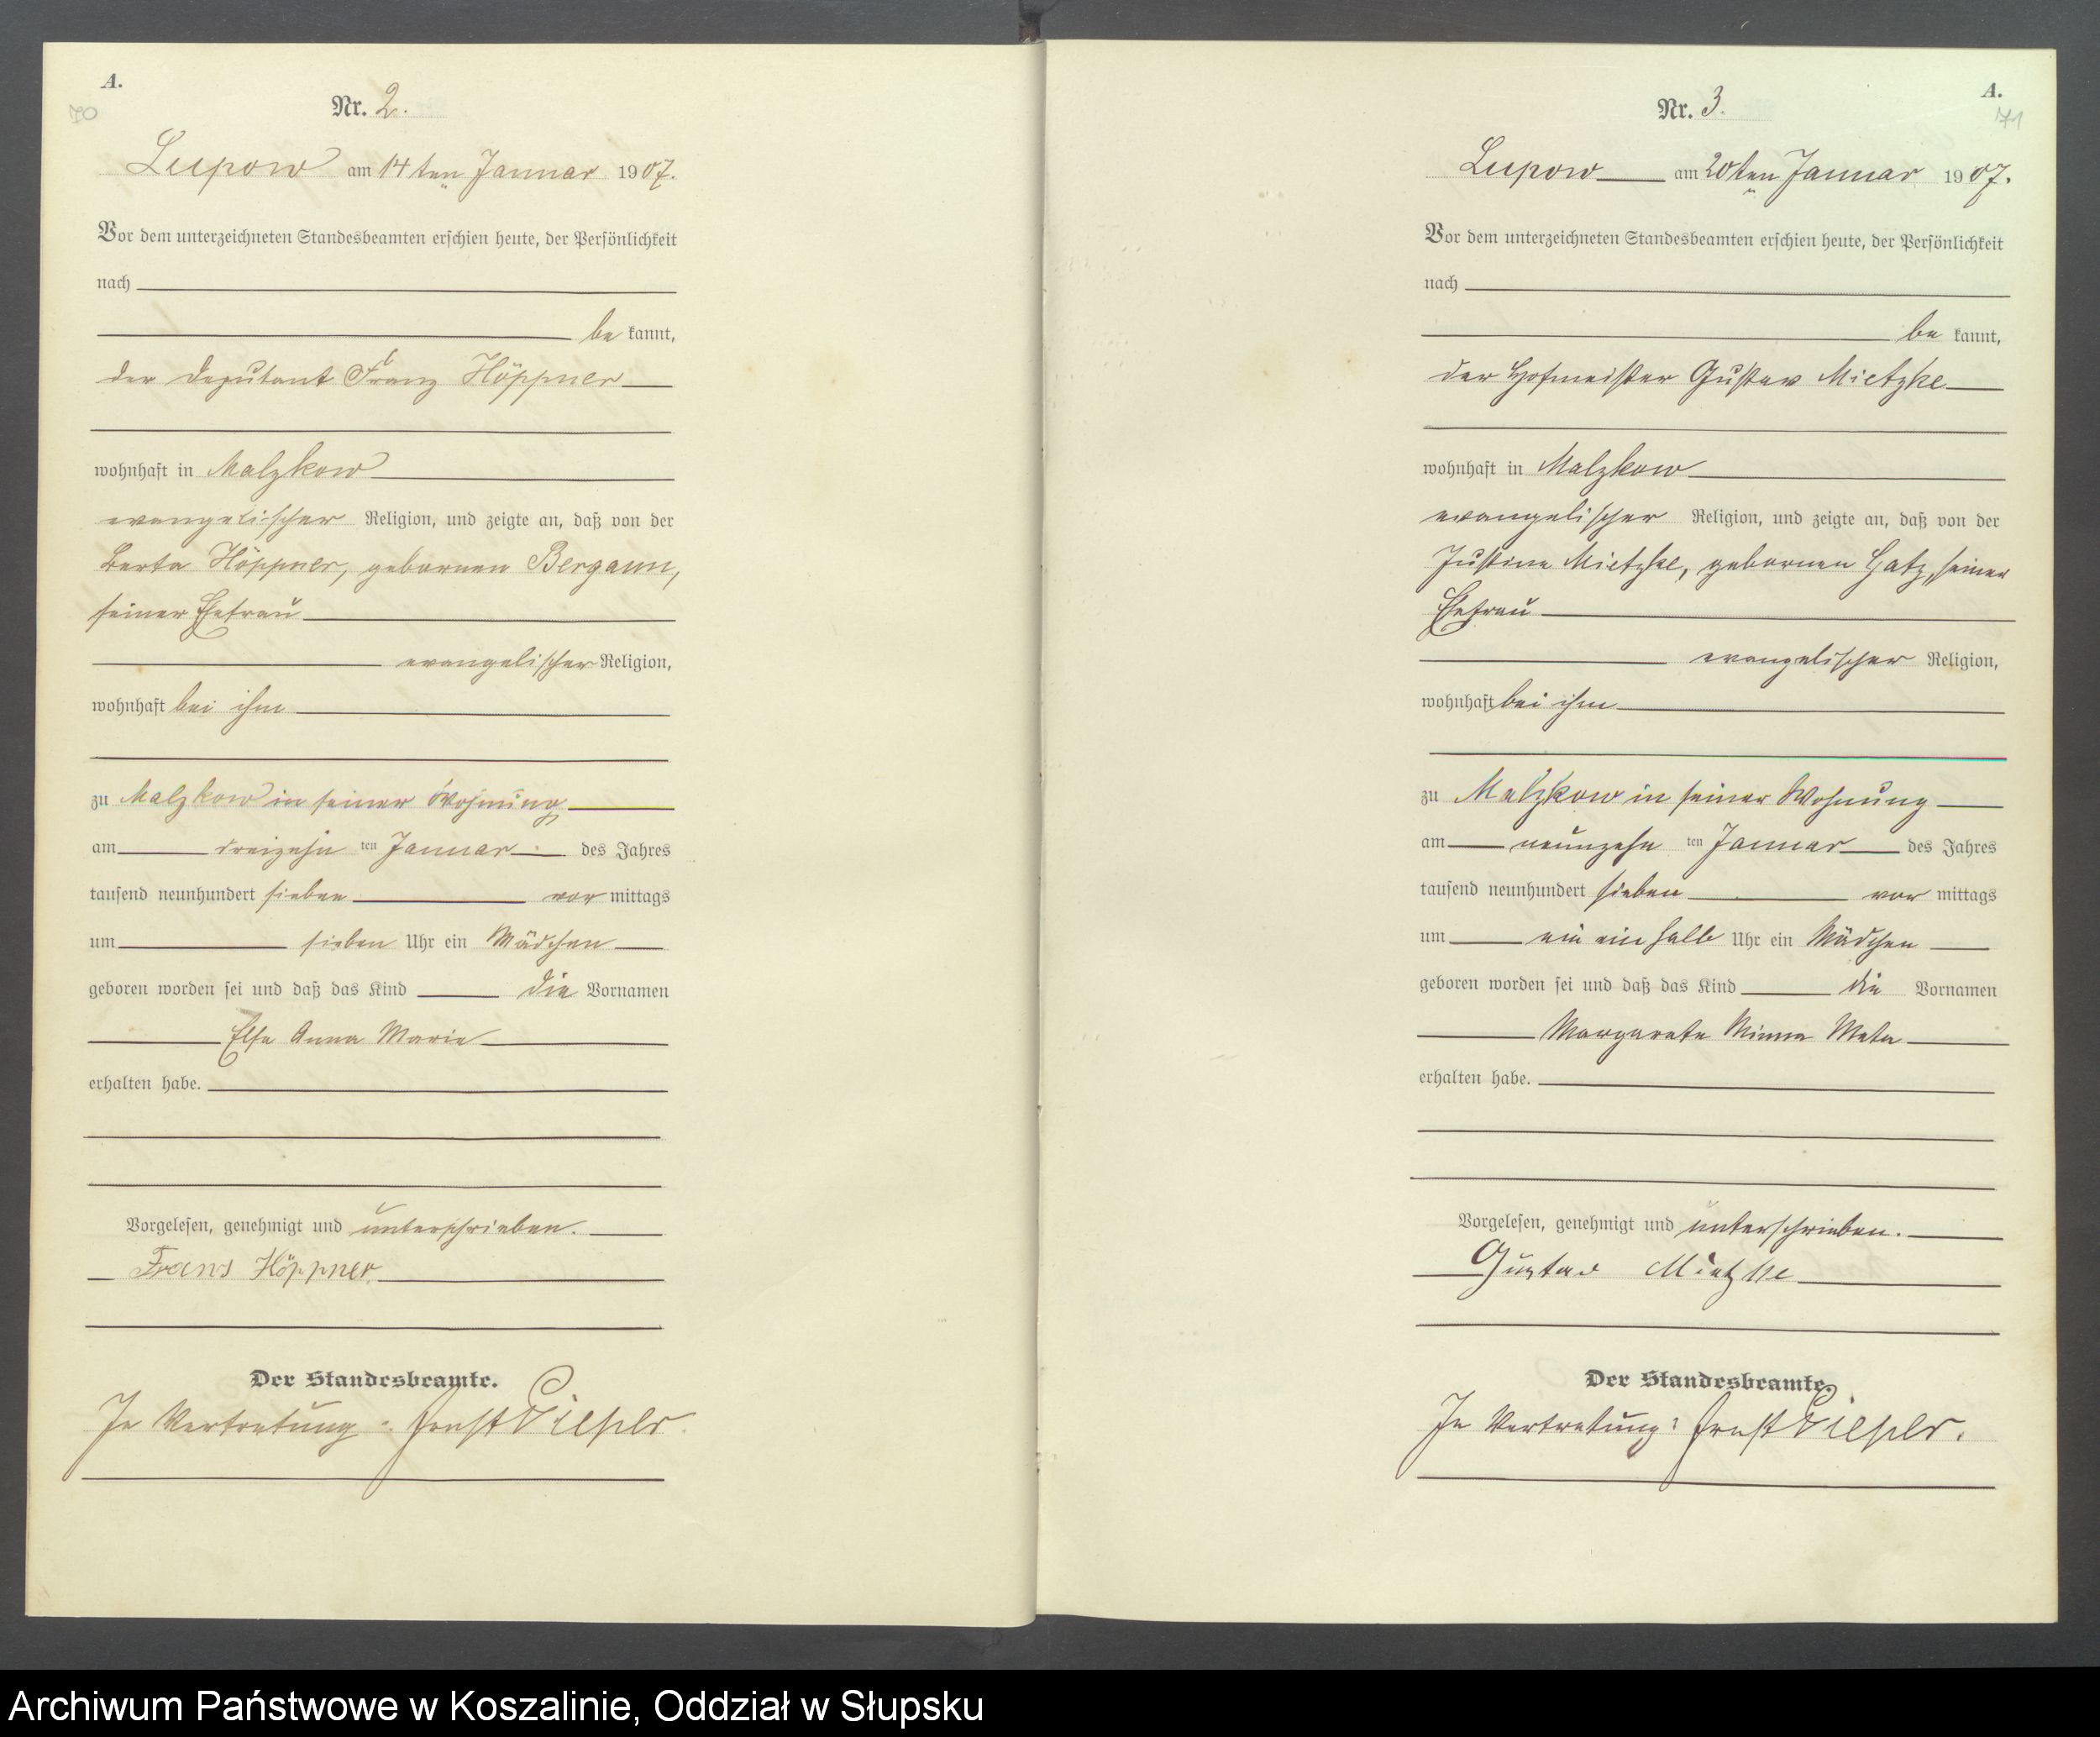 A.
70
Nr. 2.
Lupow am 14ten Januar 1907.
Vor dem unterzeichneten Standesbeamten erschien heute, der Persönlichkeit
nach
be kannt,
der Deputant Franz Höppner
wohnhaft in Malzkow
evangelischer Religion, und zeigte an, daß von der
Berta Höppner, gebornen Bergann,
seiner Ehefrau
evangelischer Religion,
wohnhaft bei ihm
zu Malzkow in seiner Wohnung
am dreizehn ten Januar des Jahres
tausend neunhundert sieben vor mittags
um sieben Uhr ein Mädchen
geboren worden sei und daß das Kind die Vornamen
Else Anna Marie
erhalten habe.
Vorgelesen, genehmigt und unterschrieben.
Frans Höppner
Der Standesbeamte.
In Vertretung: Ernst Pieper.
A.
71
Nr. 3.
Lupow am 20ten Januar 1907.
Vor dem unterzeichneten Standesbeamten erschien heute, der Persönlichkeit
nach
be kannt,
der Hofmeister Gustav Mietzke
wohnhaft in Malzkow
evangelischer Religion, und zeigte an, daß von der
Justine Mietzke, gebornen Gatz, seiner
Ehefrau
evangelischer Religion,
wohnhaft bei ihm
zu Malzkow in seiner Wohnung
am neunzehn ten Januar des Jahres
tausend neunhundert sieben vor mittags
um ein ein halb Uhr ein Mädchen
geboren worden sei und daß das Kind die Vornamen
Margarete Minna Meta
erhalten habe.
Vorgelesen, genehmigt und unterschrieben.
Gustav Mietzke
Der Standesbeamte.
In Vertretung: Ernst Pieper.
Archiwum Państwowe w Koszalinie, Oddział w Słupsku